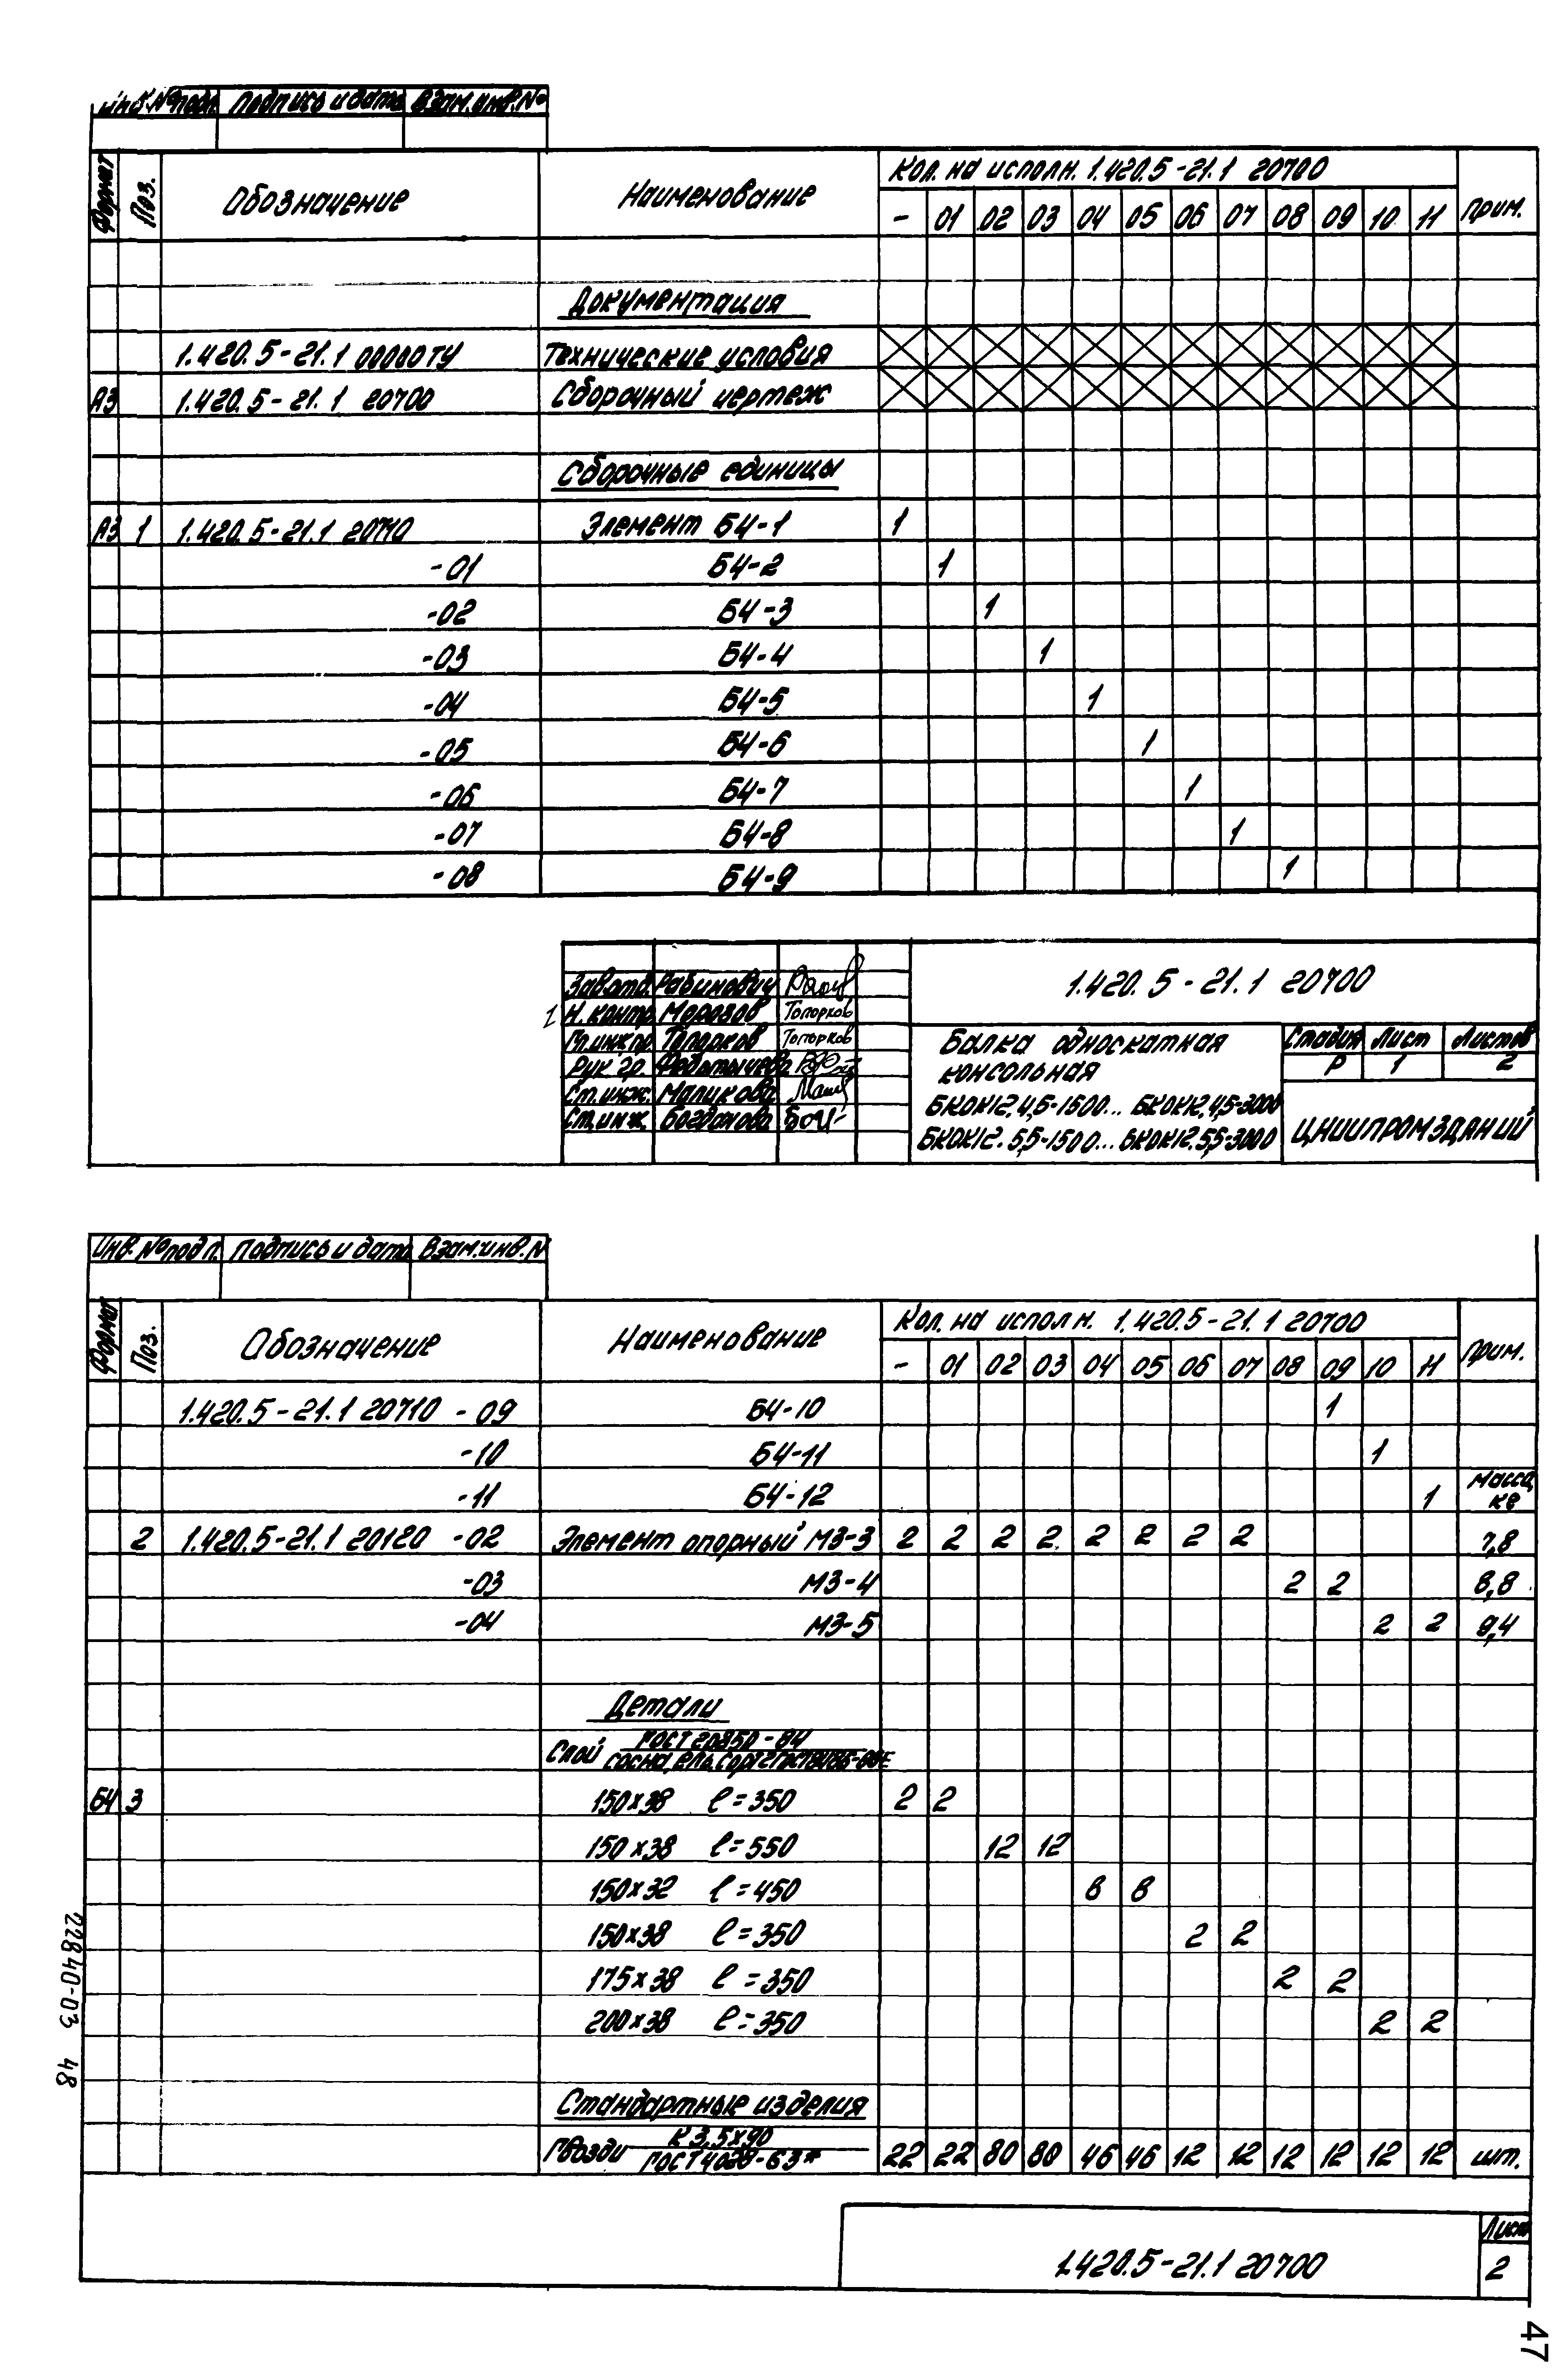 Инв.№ подл. Подпись и дата Взам.инв.№
Формат Поз. Обозначение Наименование Кол. на исполн. 1.420.5-21.1 20700 Прим.
- 01 02 03 04 05 06 07 08 09 10 11
Документация
1.420.5-21.1 00000ТУ Технические условия
А3 1.420.5-21.1 20700 Сборочный чертеж
Сборочные единицы
А3 1 1.420.5-21.1 20710 Элемент Б4-1 1
-01 Б4-2 1
-02 Б4-3 1
-03 Б4-4 1
-04 Б4-5 1
-05 Б4-6 1
-06 Б4-7 1
-07 Б4-8 1
-08 Б4-9 1
Зав.отд. Рабинович
Н.контр. Морозов Топорков
Гл.инж.пр. Топорков Топорков
Рук.гр. Федотычева
Ст.инж. Маликова
Ст.инж. Богданова
1.420.5-21.1 20700
Балка односкатная
консольная
БКОК12.4,5-1500... БКОК12.4,5-3000
БКОК12.5,5-1500... БКОК12.5,5-3000
Стадия Лист Листов
Р 1 2
ЦНИИПРОМЗДАНИЙ
Инв.№ подл. Подпись и дата Взам.инв.N
Формат Поз. Обозначение Наименование Кол. на исполн. 1.420.5-21.1 20700 Прим.
- 01 02 03 04 05 06 07 08 09 10 11
1.420.5-21.1 20710 -09 Б4-10 1
-10 Б4-11 1
-11 Б4-12 1 Масса, кг
2 1.420.5-21.1 20120 -02 Элемент опорный М3-3 2 2 2 2 2 2 2 2 7,8
-03 М3-4 2 2 8,8
-04 М3-5 2 2 9,4
Детали
Слой ГОСТ 20850-84
сосна, ель, сорт 2 ГОСТ 8486-86Е
БЧ 3 150×38 ℓ=350 2 2
150×38 ℓ=550 12 12
150×32 ℓ=450 8 8
150×38 ℓ=350 2 2
175×38 ℓ=350 2 2
200×38 ℓ=350 2 2
Стандартные изделия
Гвозди К3,5×90
ГОСТ 4028-63* 22 22 80 80 46 46 12 12 12 12 12 12 шт.
1.420.5-21.1 20700
Лист
2
22840-03 48
47